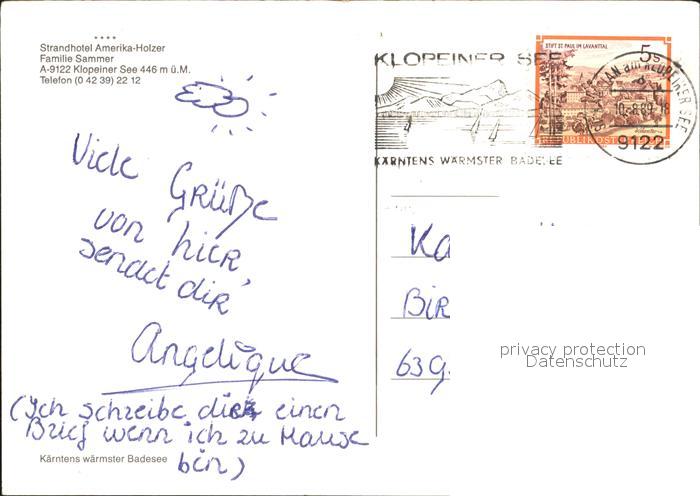 Strandhotel Amerika-Holzer
Familie Sammer
A-9122 Klopeiner See 446 m ü.M.
Telefon (0 42 39) 22 12
KLOPEINER SEE
KÄRNTENS WÄRMSTER BADESEE
STIFT ST. PAUL IM LAVANTTAL
5s
REPUBLIK ÖSTERREICH
AM KLOPEINER SEE
10.-8.89-18
9122
Viele Grüße
von hier,
sendet dir
Angelique
(Ich schreibe dir einen
Brief wenn ich zu Hause
bin)
Ka
Bir
639
privacy protection
Datenschutz
Kärntens wärmster Badesee